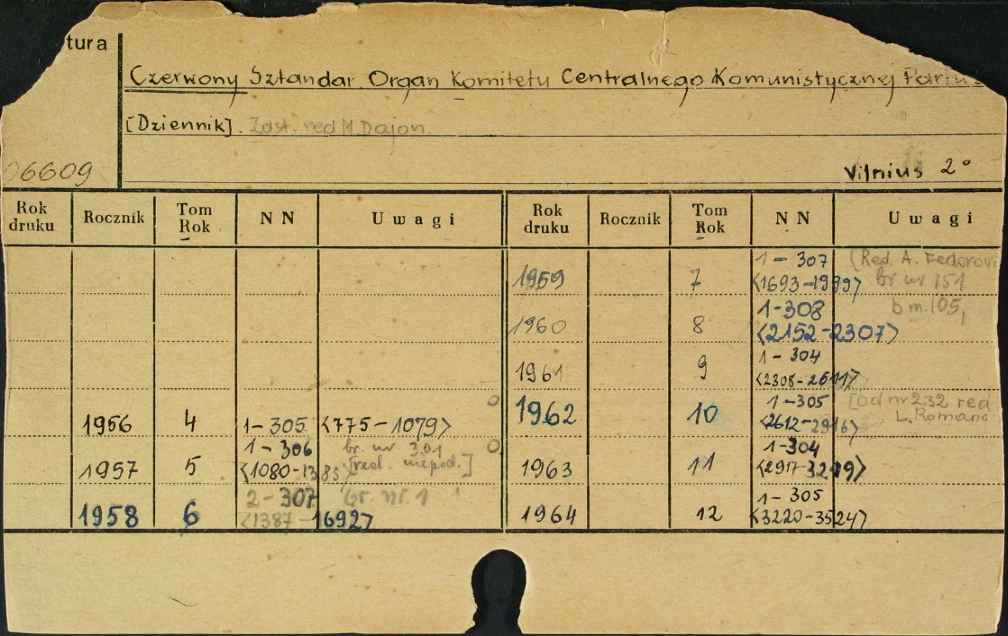 tura
Czerwony Sztandar. Organ Komitetu Centralnego Komunistycznej Partii
[Dziennik]. Zast. red M Dajon.
06609
Vilnius 2°
Rok druku Rocznik Tom Rok N N Uwagi Rok druku Rocznik Tom Rok N N Uwagi
1956 4 1-305 <775-1079>
1957 5 1-306 br. nr 301
<1080-1385> [red. niepod.]
1958 6 2-307 br. nr. 1
<1387-1692>
1959 7 1-307 [Red. A. Fedorovi
<1693-1999> br nr 151
1960 8 1-308 b.m. 105,
<2152-2307>
1961 9 1-304
<2308-2611>
1962 10 1-305 [od nr 232 red
<2612-2916> L. Romano
1963 11 1-304
<2917-3219>
1964 12 1-305
<3220-3524>